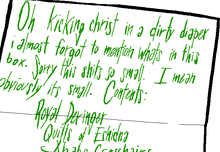 Oh kicking christ in a dirty diaper
i almost forgot to mention whats in this
box. Sorry this shits so small. I mean
obviously its small. Contents:
Royal Deringer
Quills of Echidna